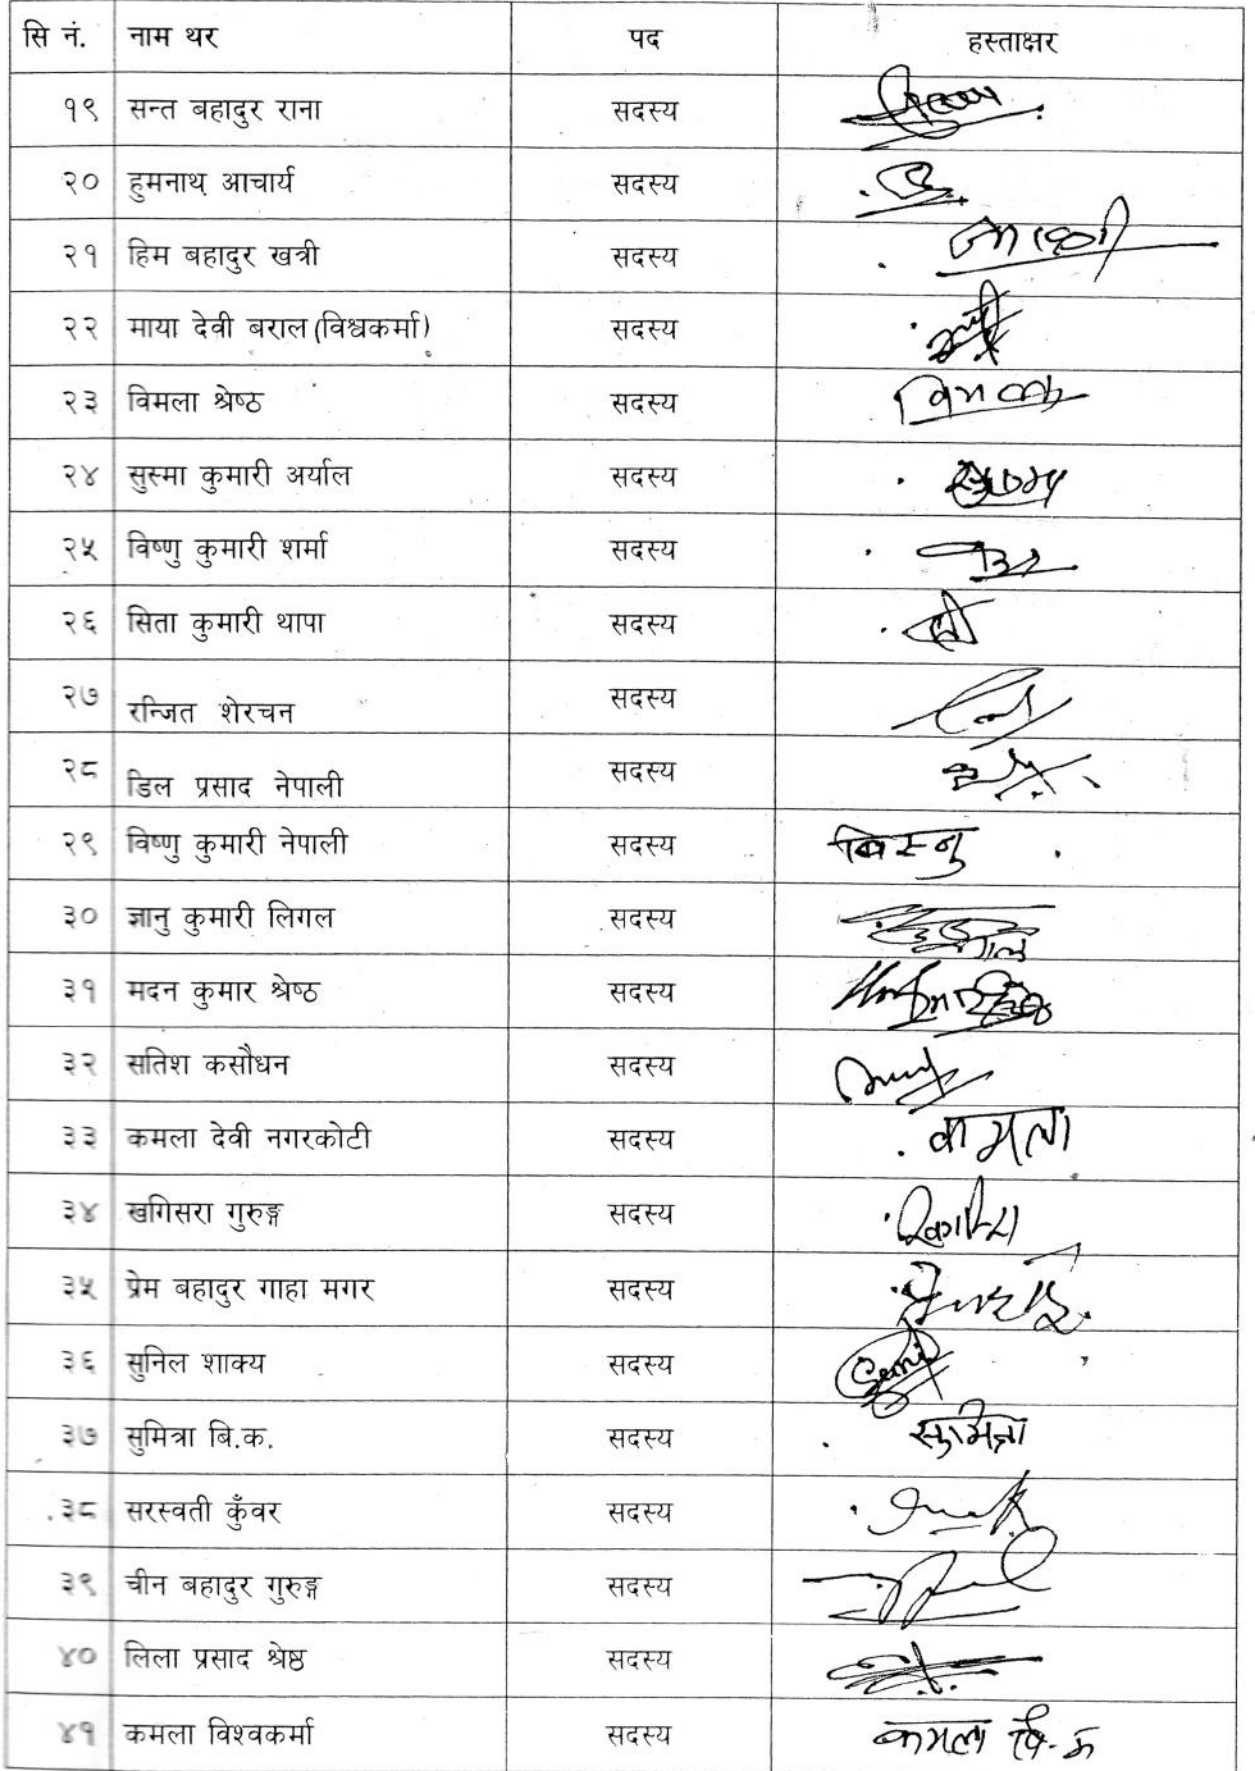 सि नं. नाम थर पद हस्ताक्षर
१९ सन्त बहादुर राना सदस्य
२० हुमनाथ आचार्य सदस्य
२१ हिम बहादुर खत्री सदस्य
२२ माया देवी बराल (विश्वकर्मा) सदस्य
२३ विमला श्रेष्ठ सदस्य विमला
२४ सुस्मा कुमारी अर्याल सदस्य
२५ विष्णु कुमारी शर्मा सदस्य
२६ सिता कुमारी थापा सदस्य
२७ रन्जित शेरचन सदस्य
२८ डिल प्रसाद नेपाली सदस्य
२९ विष्णु कुमारी नेपाली सदस्य बिस्नु
३० ज्ञानु कुमारी लिगल सदस्य
३१ मदन कुमार श्रेष्ठ सदस्य
३२ सतिश कसौधन सदस्य
३३ कमला देवी नगरकोटी सदस्य कामला
३४ खगिसरा गुरुङ्ग सदस्य
३५ प्रेम बहादुर गाहा मगर सदस्य
३६ सुनिल शाक्य सदस्य
३७ सुमित्रा बि.क. सदस्य सुमित्रा
३८ सरस्वती कुँवर सदस्य
३९ चीन बहादुर गुरुङ्ग सदस्य
४० लिला प्रसाद श्रेष्ठ सदस्य
४१ कमला विश्वकर्मा सदस्य कमला वि.क